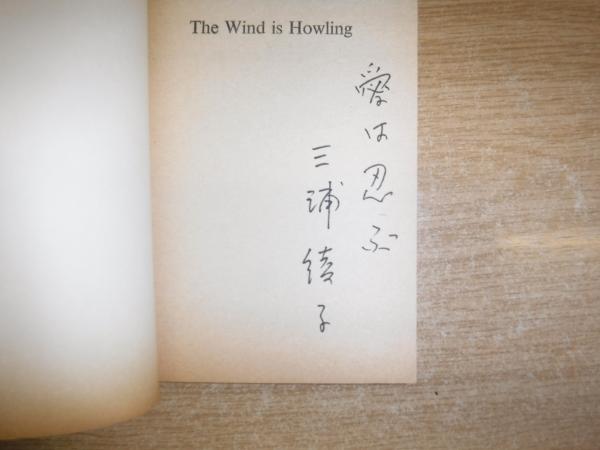 The Wind is Howling
愛は忍ぶ
三浦綾子